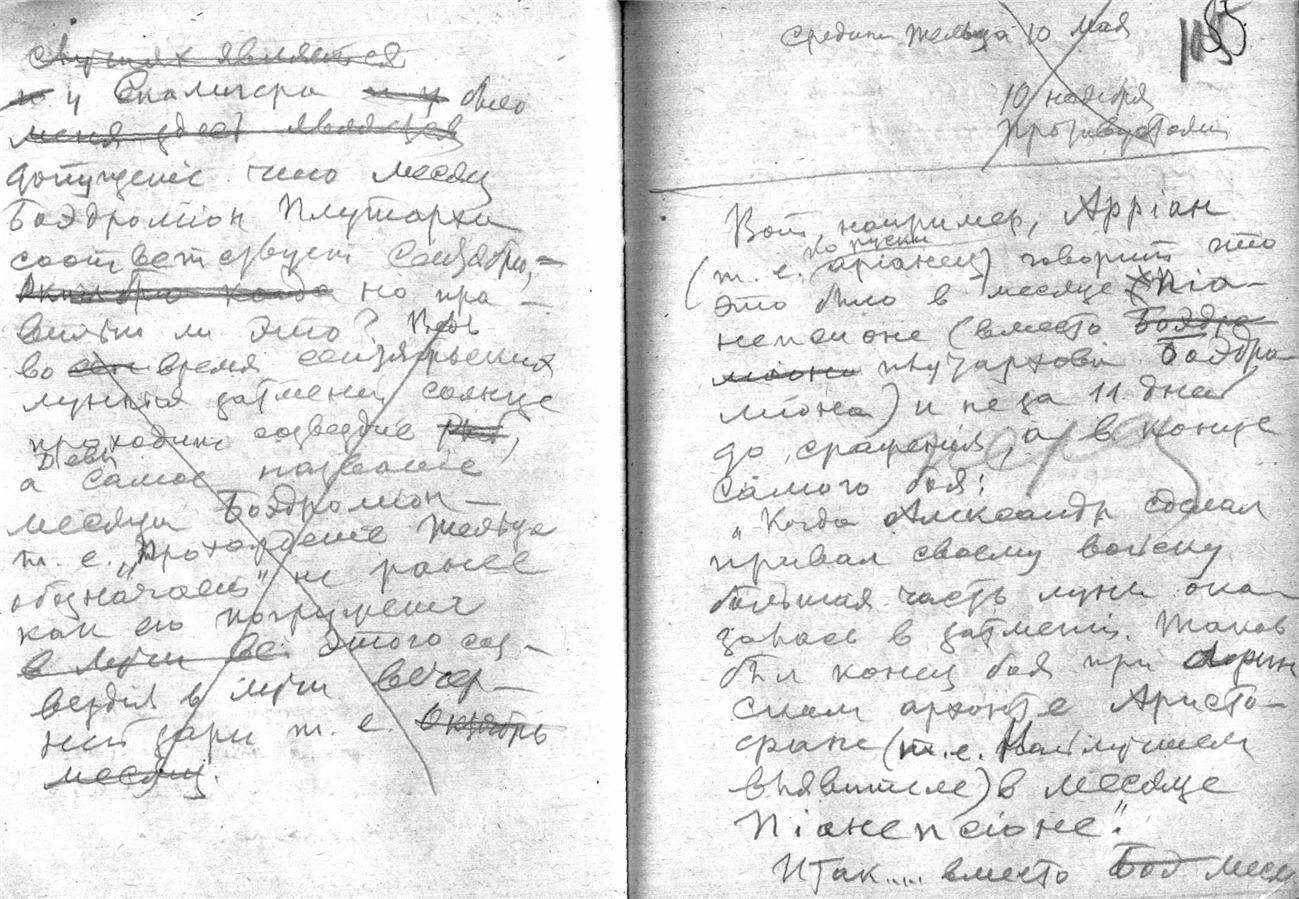 случаях является
и у Скалигера и у было
меня здесь является
допущенiе что месяц
Боэдромiон Плутарха
соответствует Сентябрю,
Октябрю когда но пра-
вильно ли это? Ведь
во время сентябрьских
лунных затменiй солнце
проходит созвездие
Девы
а самое названiе
месяца Боэдромiон —
т. е. „Прохожденiе Тельца
обозначает" не ранее
как его погруженiе
в лучи этого соз-
вездiя в лучи вечер-
ней зари т. е. Октябрь
месяц.
Средина Тельца 10 мая
10 ноября
противустоян
105
Вот, например, Аррiан
по русски
(т. е. арiанец) говорит что
это было в месяце Пiа-
непсионе (вместо Боэдро
мiона плутархова Боэдро
мiона) и не за 11 дней
до сраженiя, а в конце
самого боя:
„Когда Александр сделал
привал своему войску
большая часть луны ока-
залась в затменiи. Таков
был конец боя при
ском архонте Аристо-
фане (т. е. Наилучшем
выявителе) в месяце
Пiанепсiоне".
Итак.... вместо Боэ меся